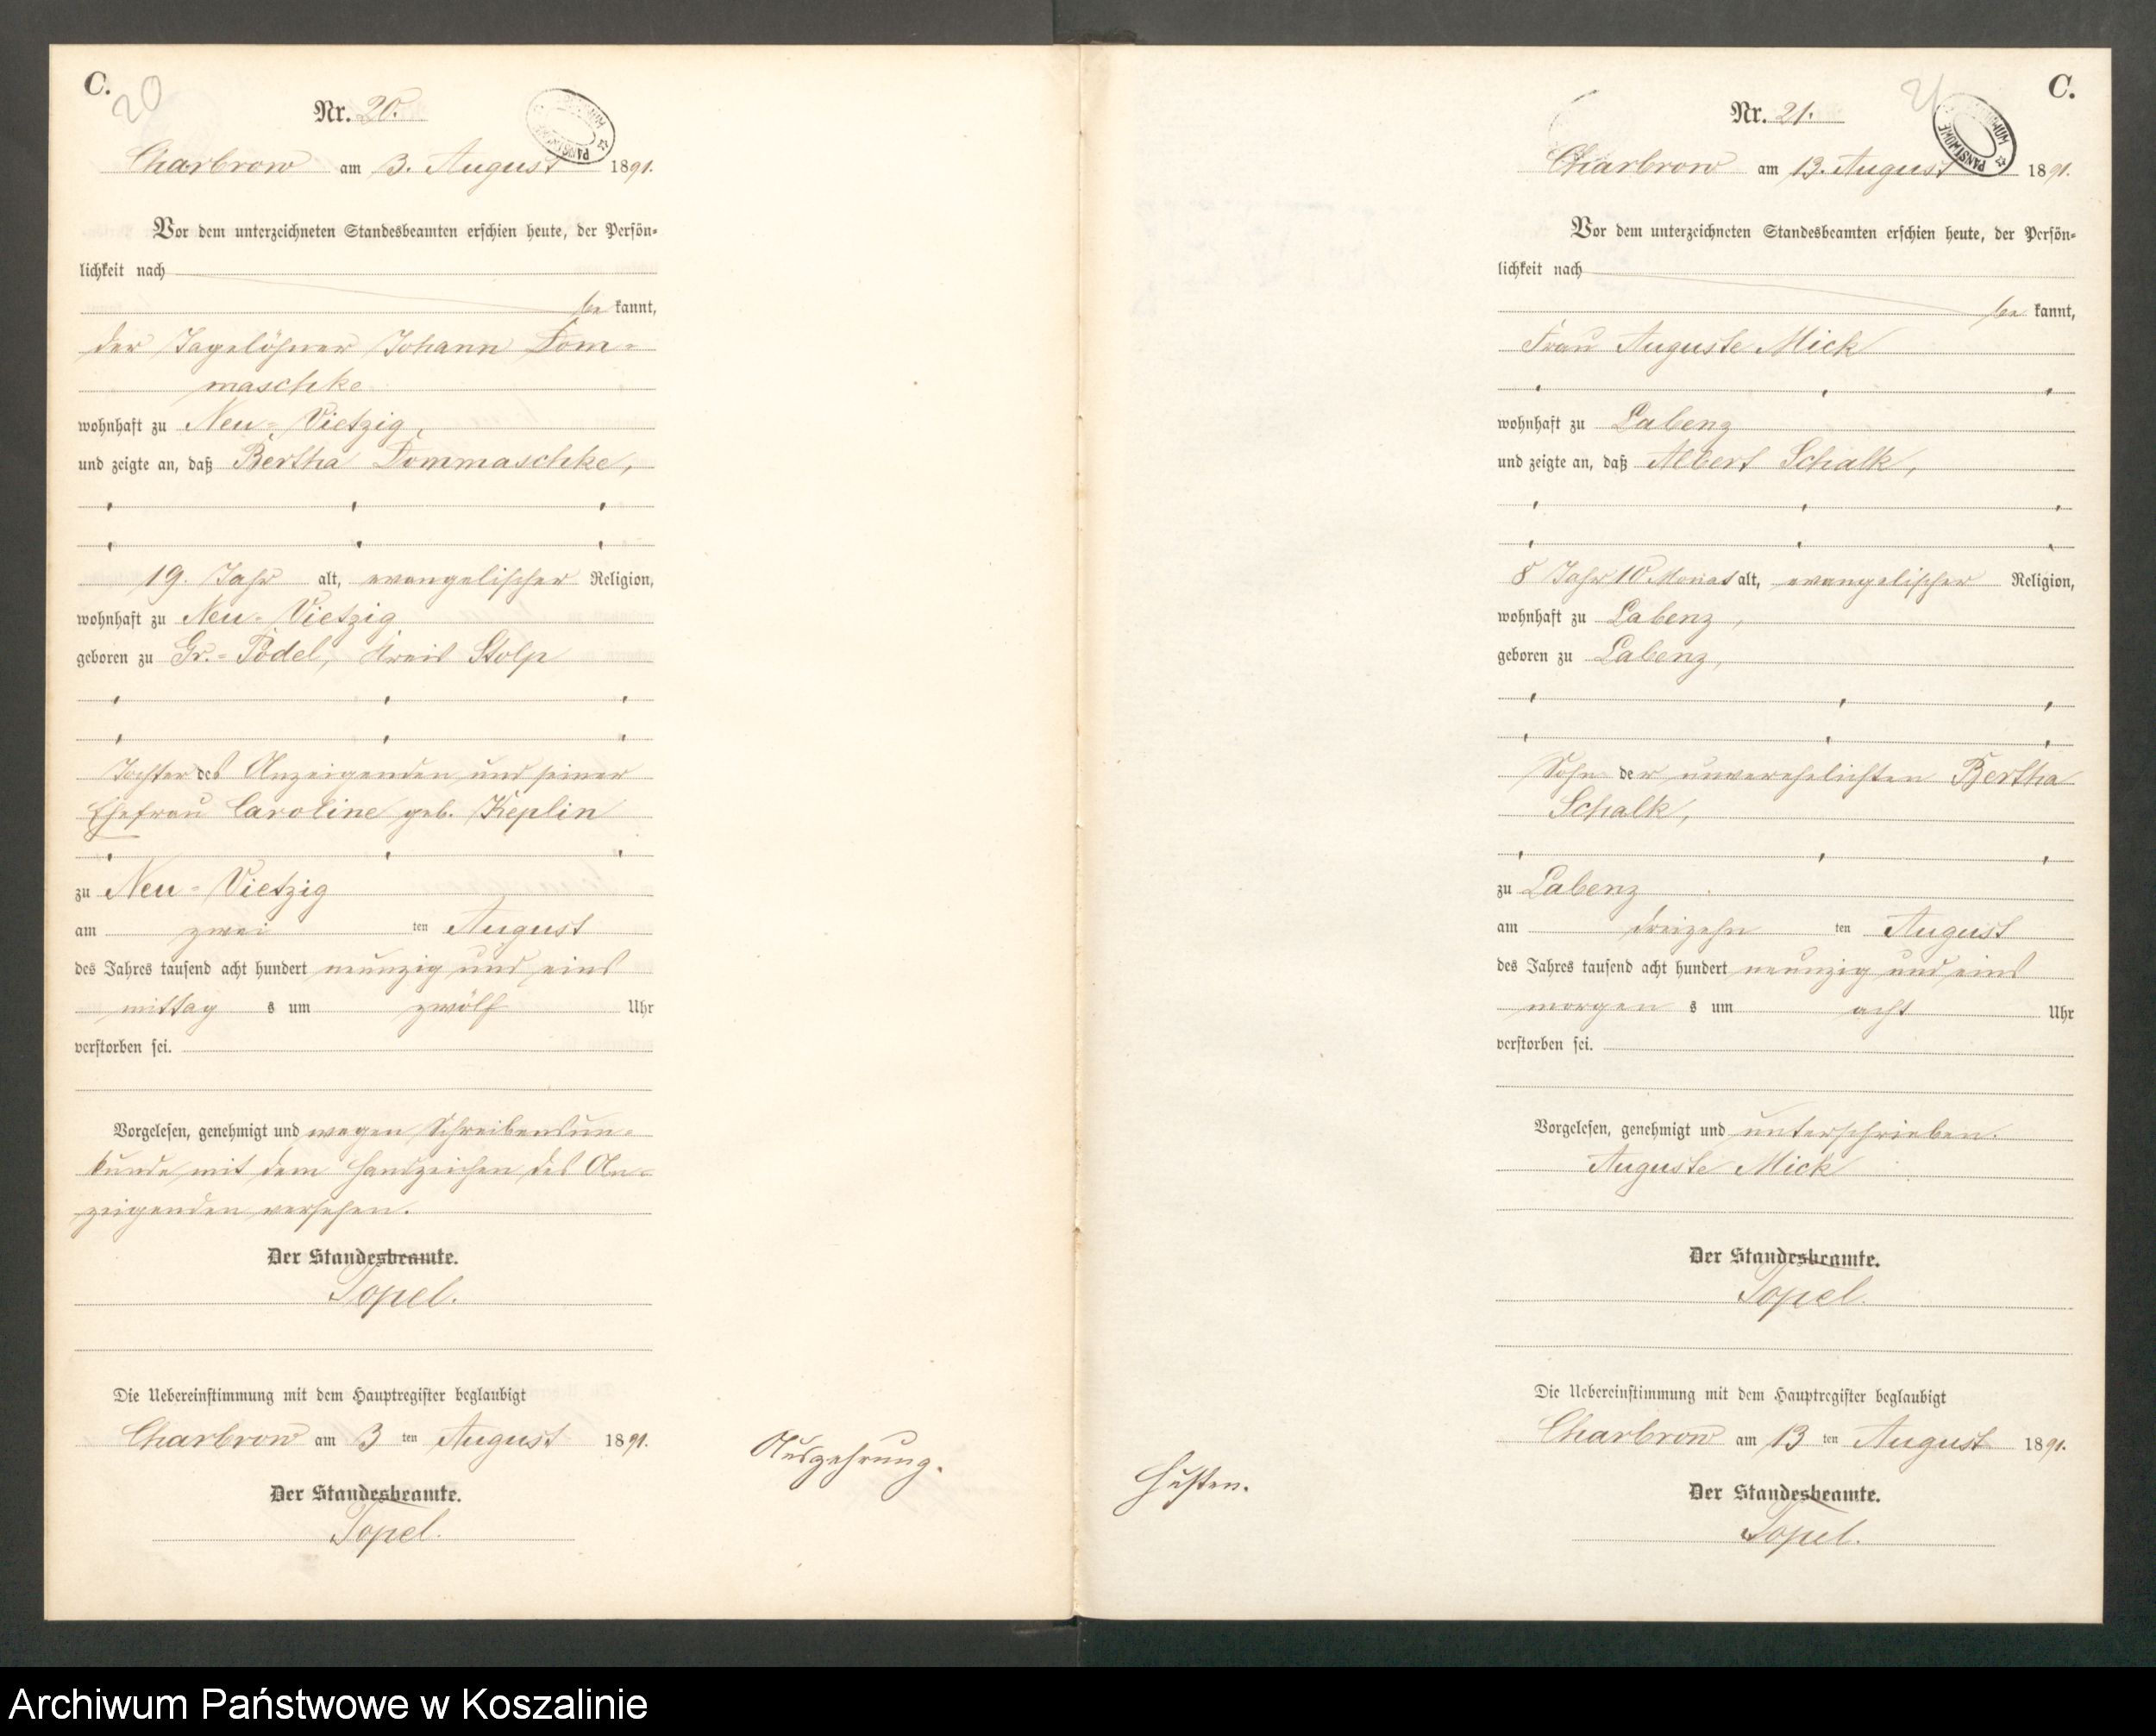 C.
20
Nr. 20.
PAŃSTWOWE
Charbrow am 3. August 1891.
Vor dem unterzeichneten Standesbeamten erschien heute, der Persön-
lichkeit nach
be kannt,
der Tagelöhner Johann Dom-
maschke
wohnhaft zu Neu-Vietzig,
und zeigte an, daß Bertha Dommaschke,
19. Jahr alt, evangelischer Religion,
wohnhaft zu Neu-Vietzig
geboren zu Gr.-Podel, Kreis Stolp
Tochter des Anzeigenden und seiner
Ehefrau Caroline geb. Keplin
zu Neu-Vietzig
am zwei ten August
des Jahres tausend acht hundert neunzig und eins
mittag s um zwölf Uhr
verstorben sei.
Vorgelesen, genehmigt und wegen Schreibensun-
kunde mit dem Handzeichen des An-
zeigenden versehen.
Der Standesbeamte.
Topel.
Die Uebereinstimmung mit dem Hauptregister beglaubigt
Charbrow am 3 ten August 1891.
Der Standesbeamte.
Topel.
Auszehrung.
C.
21
Nr. 21.
PAŃSTWOWE
Charbrow am 13. August 1891.
Vor dem unterzeichneten Standesbeamten erschien heute, der Persön-
lichkeit nach
be kannt,
Frau Auguste Mick
wohnhaft zu Labenz
und zeigte an, daß Albert Schalk,
8 Jahr 10 Monat alt, evangelischer Religion,
wohnhaft zu Labenz,
geboren zu Labenz,
Sohn der unverehelichten Bertha
Schalk,
zu Labenz
am dreizehn ten August
des Jahres tausend acht hundert neunzig und eins
morgen s um acht Uhr
verstorben sei.
Vorgelesen, genehmigt und unterschrieben.
Auguste Mick
Der Standesbeamte.
Topel.
Die Uebereinstimmung mit dem Hauptregister beglaubigt
Charbrow am 13 ten August 1891.
Der Standesbeamte.
Topel.
Husten.
Archiwum Państwowe w Koszalinie